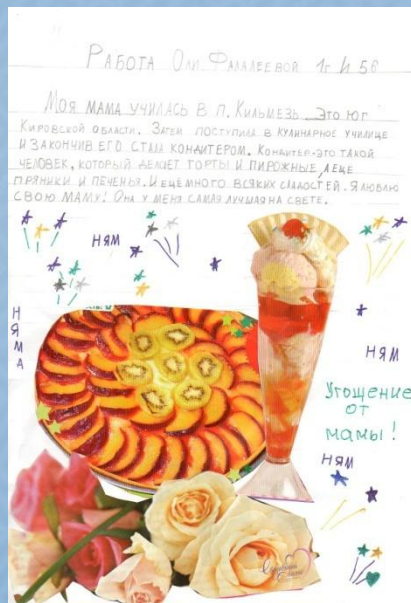 РАБОТА ОЛИ ФАЛАЛЕЕВОЙ 1г И 5б
МОЯ МАМА УЧИЛАСЬ В П. КИЛЬМЕЗЬ. ЭТО ЮГ
КИРОВСКОЙ ОБЛАСТИ. ЗАТЕМ ПОСТУПИЛА В КУЛИНАРНОЕ УЧИЛИЩЕ
И ЗАКОНЧИВ ЕГО СТАЛА КОНДИТЕРОМ. КОНДИТЕР-ЭТО ТАКОЙ
ЧЕЛОВЕК, КОТОРЫЙ ДЕЛАЕТ ТОРТЫ И ПИРОЖНЫЕ, ЕЩЕ
ПРЯНИКИ И ПЕЧЕНЬЯ. И ЕЩЕ МНОГО ВСЯКИХ СЛАДОСТЕЙ. Я ЛЮБЛЮ
СВОЮ МАМУ! ОНА У МЕНЯ САМАЯ ЛУЧШАЯ НА СВЕТЕ.
НЯМ
НЯМА
НЯМ
Угощение
от
мамы!
НЯМ